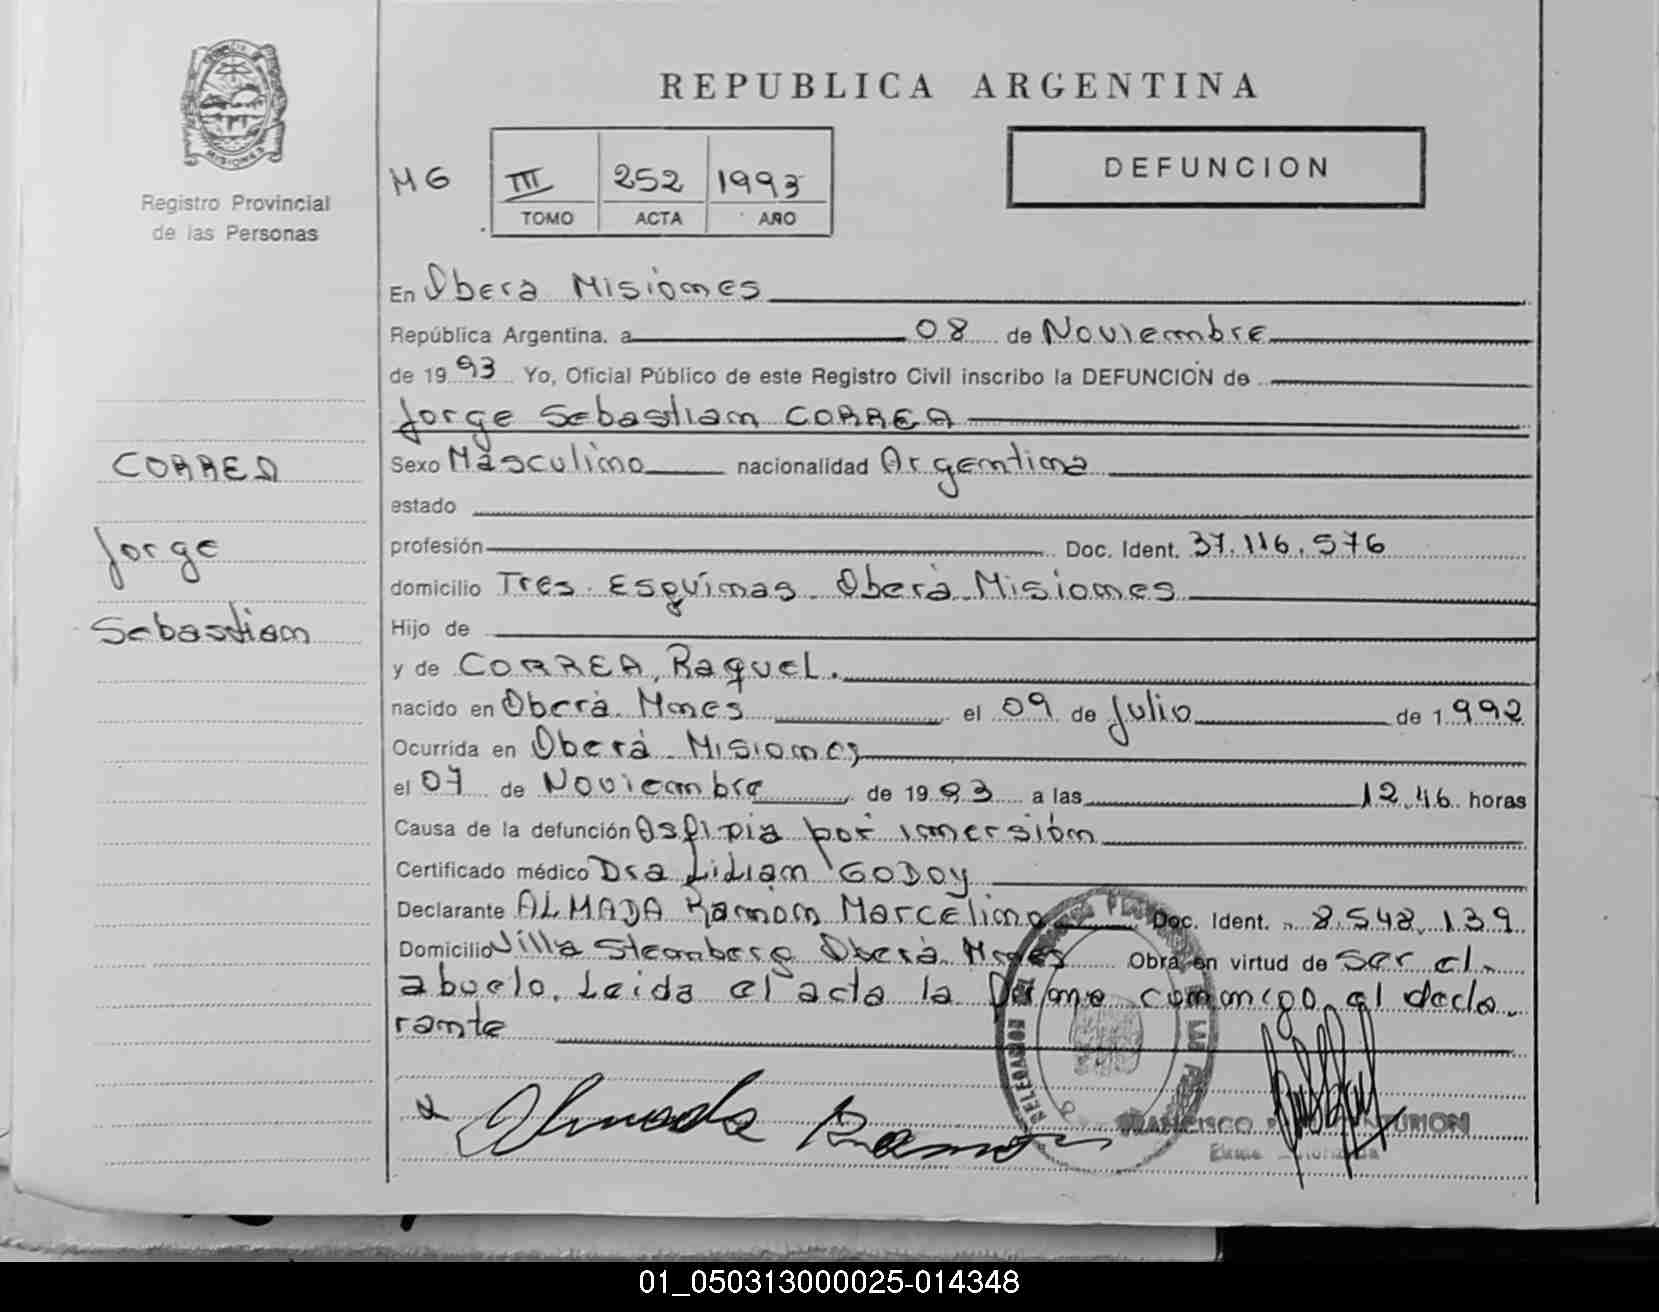 PROVINCIA DE
MISIONES
Registro Provincial
de las Personas
CORREA
Jorge
Sebastian
REPUBLICA ARGENTINA
MG
III 252 1993
TOMO ACTA AÑO
DEFUNCION
En Oberá Misiones
República Argentina, a 08 de Noviembre
de 1993 Yo, Oficial Público de este Registro Civil inscribo la DEFUNCIÓN de
Jorge Sebastian CORREA
Sexo Masculino nacionalidad Argentina
estado
profesión Doc. Ident. 37.116.576
domicilio Tres Esquinas Oberá Misiones
Hijo de
y de CORREA, Raquel.
nacido en Oberá Mnes el 09 de Julio de 1992
Ocurrida en Oberá Misiones
el 07 de Noviembre de 1993 a las 12,46 horas
Causa de la defunción Asfixia por inmersión
Certificado médico Dra Lilian GODOY
Declarante ALMADA Ramon Marcelino Doc. Ident. 8.548.139
Domicilio Villa Stemberg Oberá Mnes Obra en virtud de Ser el
abuelo. Leida el acta la firma conmigo el decla
rante
Almada Ramon
DELEGACION
FRANCISCO
01_050313000025-014348